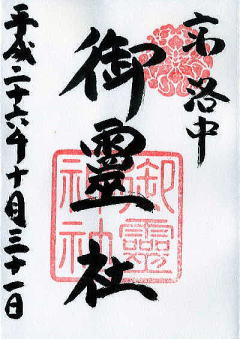 京洛中
御靈社
御靈神社
平成二十六年十月三十一日